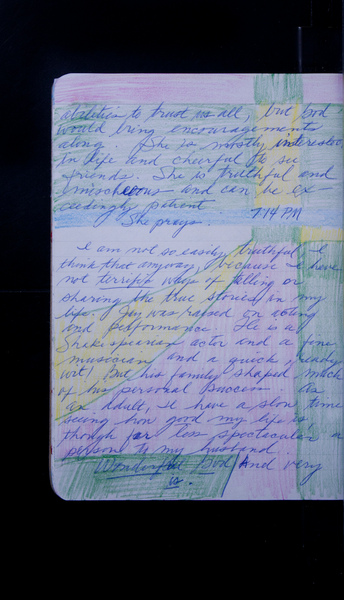 abilities to trust us all, but God
would bring encouragements
along. She is mostly interested
in life and cheerful to see
friends. She is truthful and
mischeous and can be ex-
ceedingly patient
She prays. 7:14 PM
I am not so easily truthful, I
think that anyway, because I have
not terrific ways of telling or
sharing the true stories in my
life. Jim was raised on acting
and performance. He is a
Shakespearean actor and a fine
musician and a quick, ready
wit! But his family shaped much
of his personal success. As
an adult, I have a slow time
seeing how good my life is
though far less spectacular a
person to my husband.
Wonderful God And very
is.